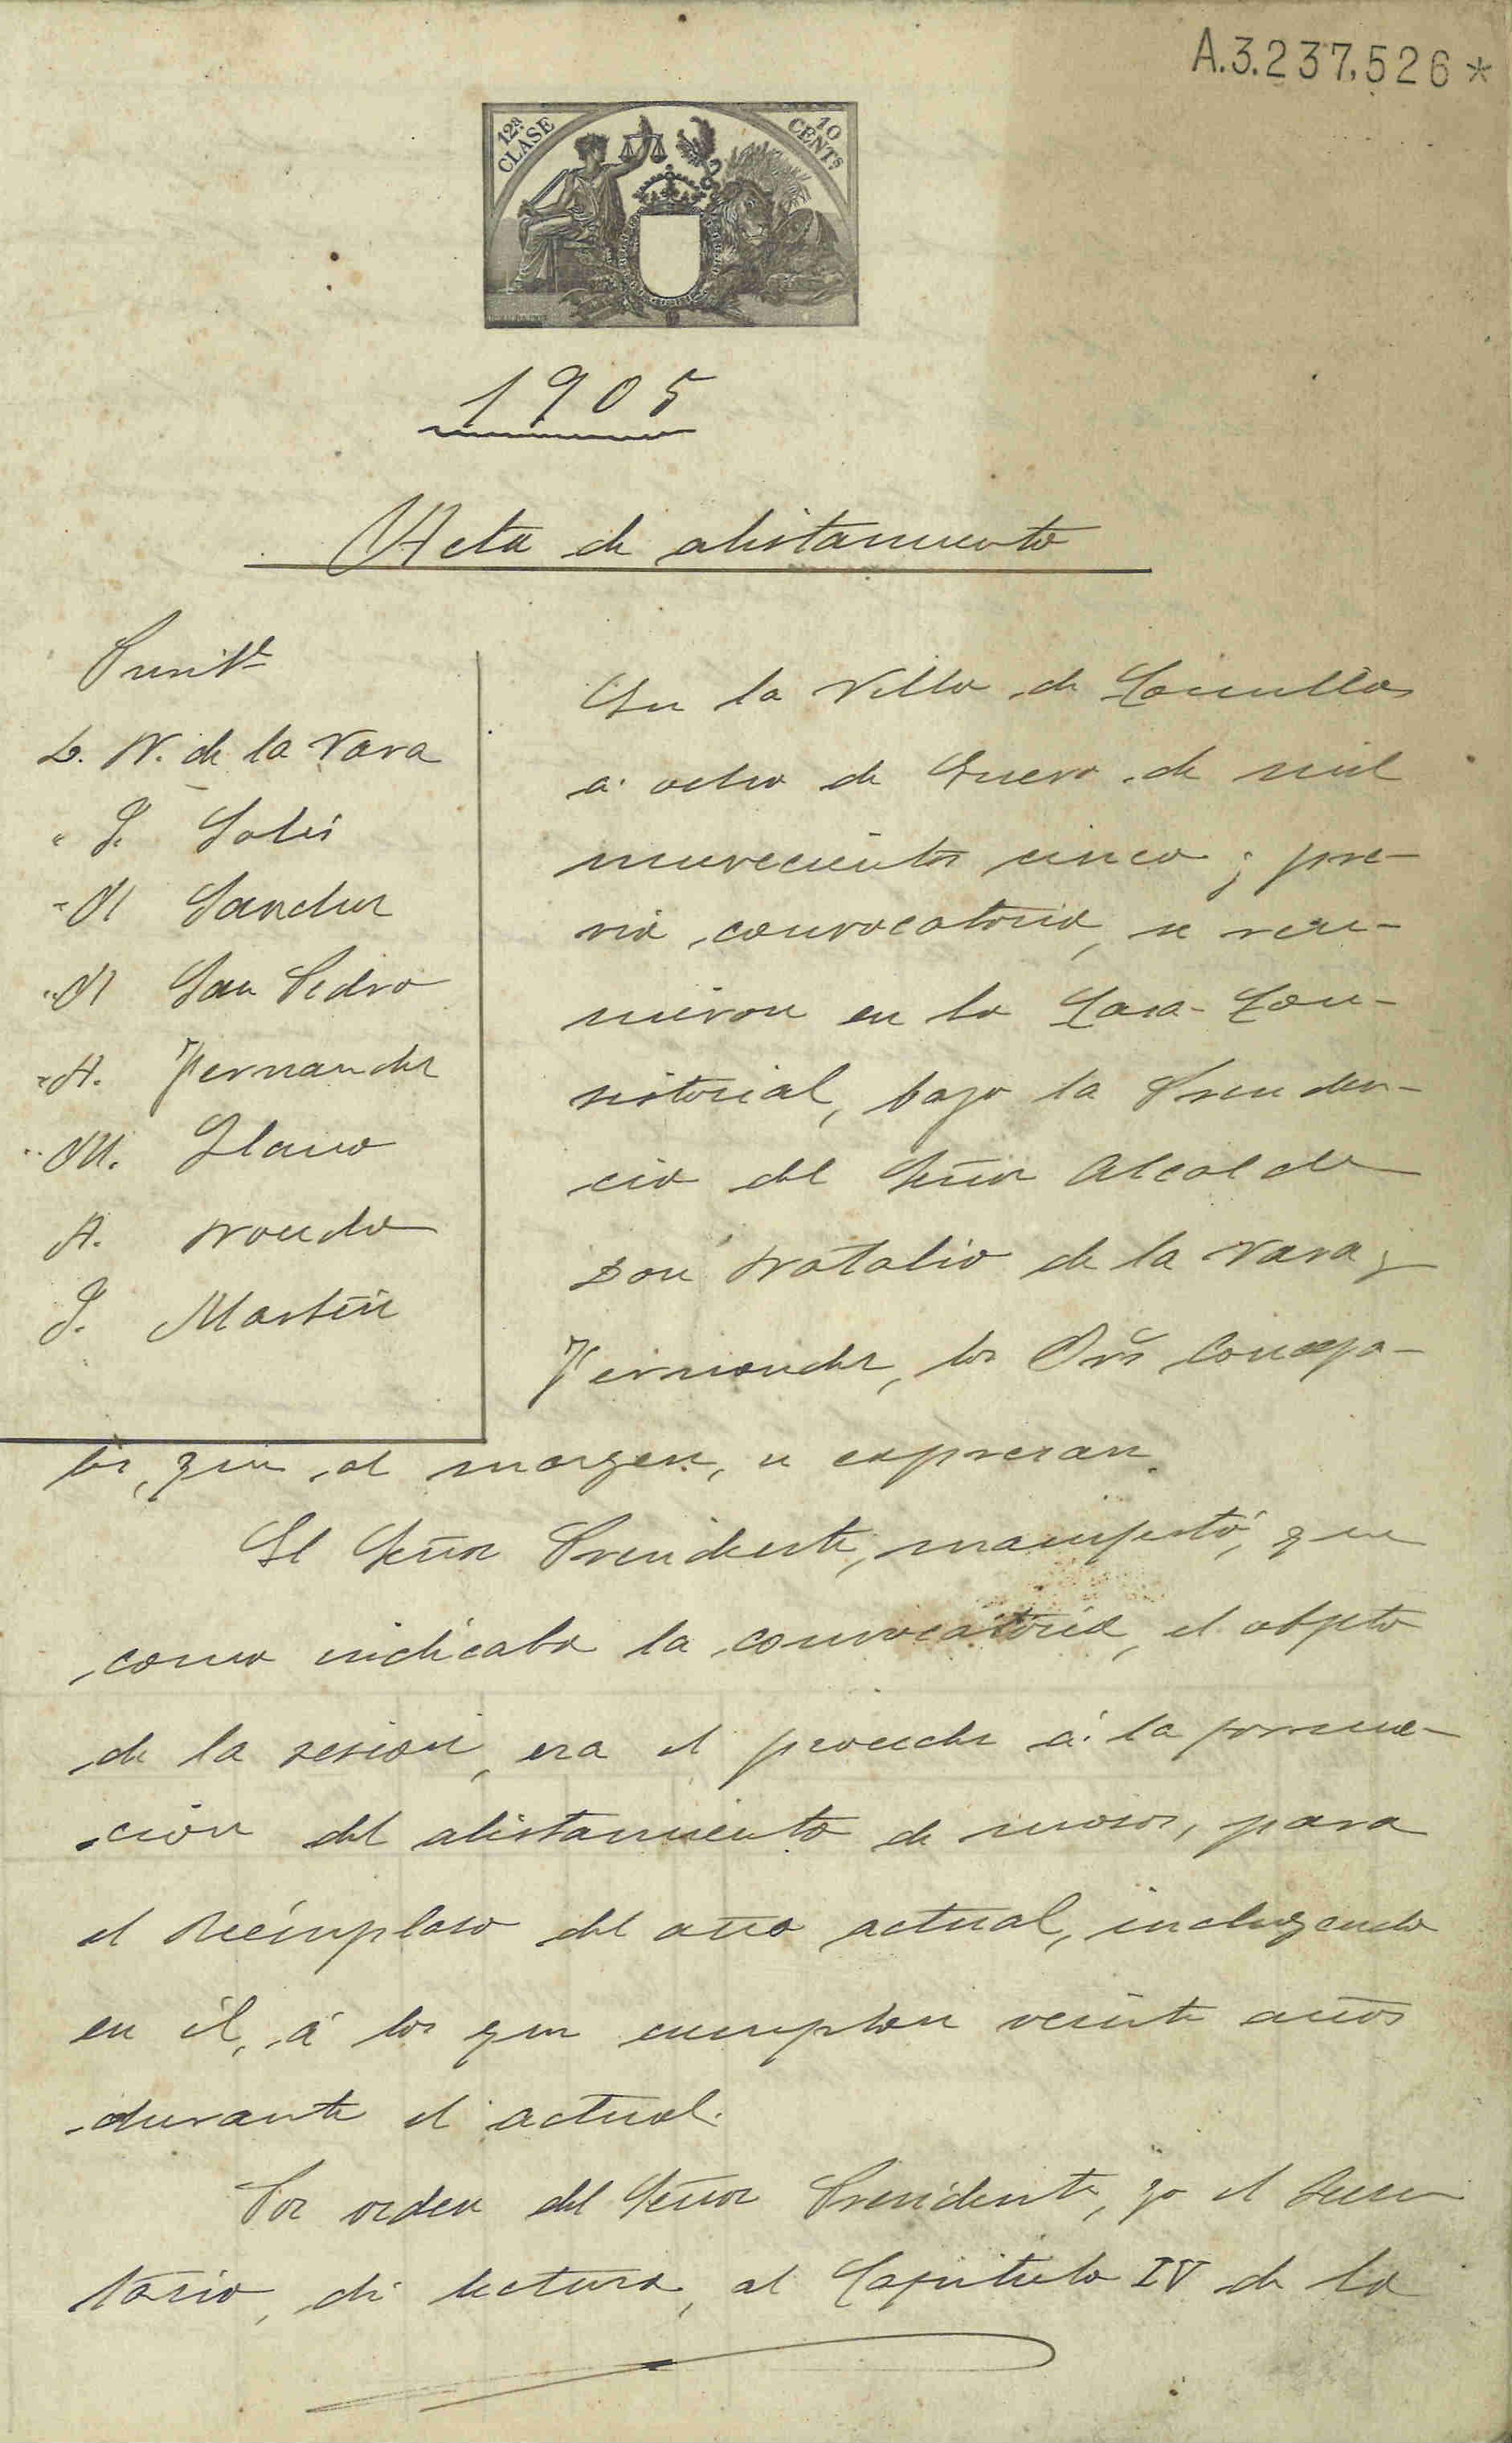 A.3.237.526*
12ª CLASE
10 CENTS
1905
Acta de alistamiento
Presidte
D. N. de la Vara
" J. Solis
" M Sanchez
" M San Pedro
" A. Fernandez
" M. Llano
A. Noriega
J. Martin
En la Villa de Comillas
a ocho de Enero de mil
novecientos cinco; pre-
via convocatoria, se reu-
nieron en la Casa-Con-
sistorial, bajo la Presiden-
cia del Señor Alcalde
Don Natalio de la Vara y
Fernandez, los Srs Conceja-
les, que al margen, se expresan.
El Señor Presidente, manifestó, que
como indicaba la convocatoria, el objeto
de la sesion, era el proceder á la forma-
ción del alistamiento de mozos, para
el Reemplazo del año actual, incluyendo
en él, á los que cumplan veinte años
durante el actual.
Por orden del Señor Presidente, yo el Secre
tario, di lectura, al Capitulo IV de la